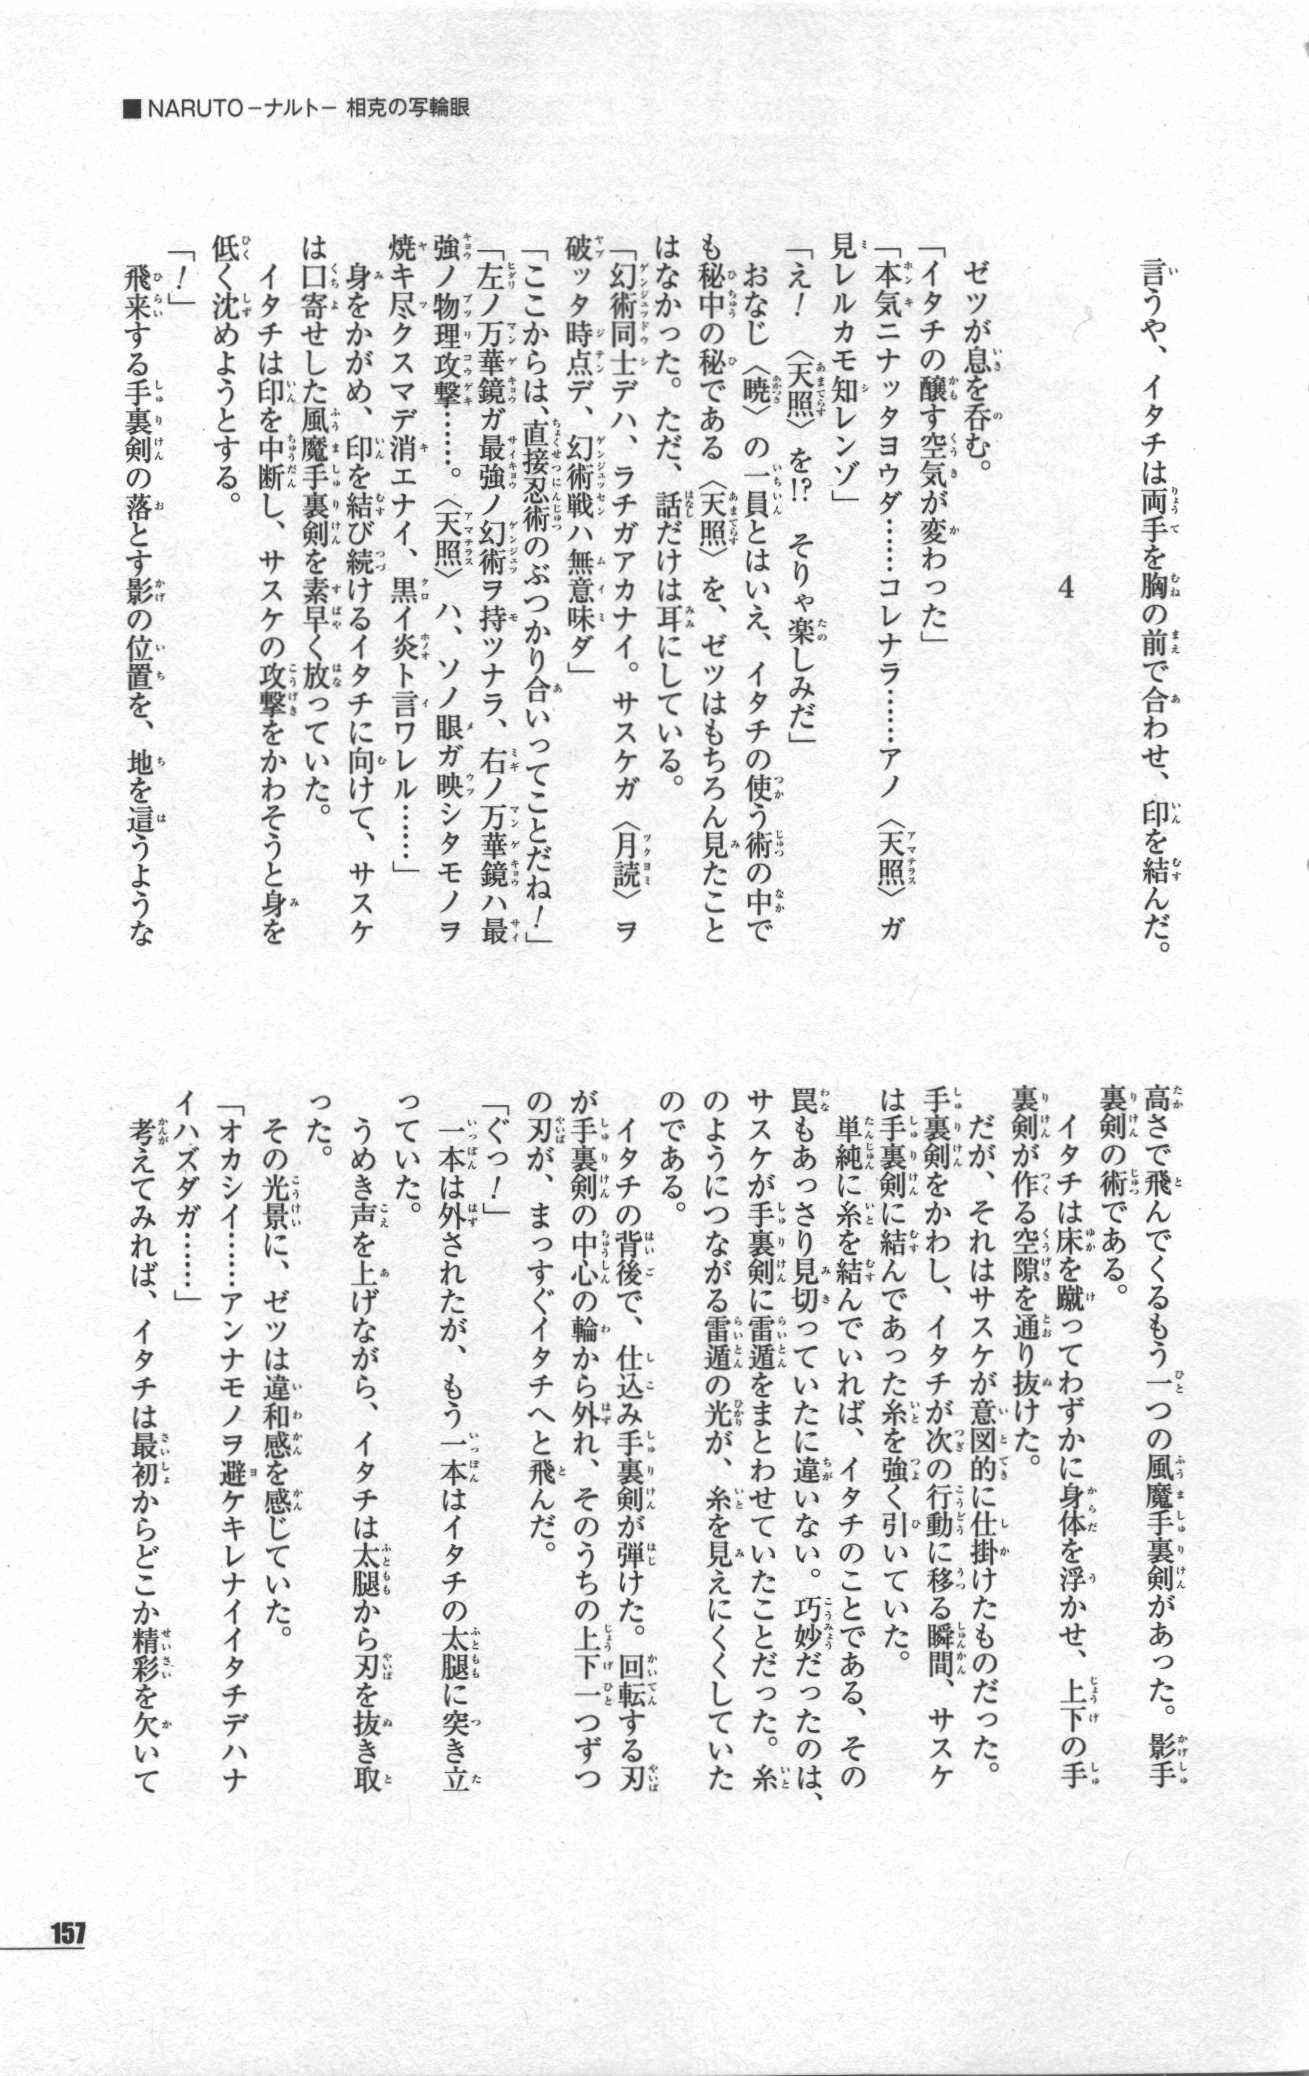 ■NARUTO－ナルト－ 相克の写輪眼
言うや、イタチは両手を胸の前で合わせ、印を結んだ。
4
ゼツが息を呑む。
「イタチの醸す空気が変わった」
「本気ニナッタヨウダ……コレナラ……アノ〈天照〉ガ
見レルカモ知レンゾ」
「え！　〈天照〉を!?　そりゃ楽しみだ」
おなじ〈暁〉の一員とはいえ、イタチの使う術の中で
も秘中の秘である〈天照〉を、ゼツはもちろん見たこと
はなかった。ただ、話だけは耳にしている。
「幻術同士デハ、ラチガアカナイ。サスケガ〈月読〉ヲ
破ッタ時点デ、幻術戦ハ無意味ダ」
「ここからは、直接忍術のぶつかり合いってことだね！」
「左ノ万華鏡ガ最強ノ幻術ヲ持ツナラ、右ノ万華鏡ハ最
強ノ物理攻撃……。〈天照〉ハ、ソノ眼ガ映シタモノヲ
焼キ尽クスマデ消エナイ、黒イ炎ト言ワレル……」
身をかがめ、印を結び続けるイタチに向けて、サスケ
は口寄せした風魔手裏剣を素早く放っていた。
イタチは印を中断し、サスケの攻撃をかわそうと身を
低く沈めようとする。
「！」
飛来する手裏剣の落とす影の位置を、地を這うような
高さで飛んでくるもう一つの風魔手裏剣があった。影手
裏剣の術である。
イタチは床を蹴ってわずかに身体を浮かせ、上下の手
裏剣が作る空隙を通り抜けた。
だが、それはサスケが意図的に仕掛けたものだった。
手裏剣をかわし、イタチが次の行動に移る瞬間、サスケ
は手裏剣に結んであった糸を強く引いていた。
単純に糸を結んでいれば、イタチのことである、その
罠もあっさり見切っていたに違いない。巧妙だったのは、
サスケが手裏剣に雷遁をまとわせていたことだった。糸
のようにつながる雷遁の光が、糸を見えにくくしていた
のである。
イタチの背後で、仕込み手裏剣が弾けた。回転する刃
が手裏剣の中心の輪から外れ、そのうちの上下一つずつ
の刃が、まっすぐイタチへと飛んだ。
「ぐっ！」
一本は外されたが、もう一本はイタチの太腿に突き立
っていた。
うめき声を上げながら、イタチは太腿から刃を抜き取
った。
その光景に、ゼツは違和感を感じていた。
「オカシイ……アンナモノヲ避ケキレナイイタチデハナ
イハズダガ……」
考えてみれば、イタチは最初からどこか精彩を欠いて
157